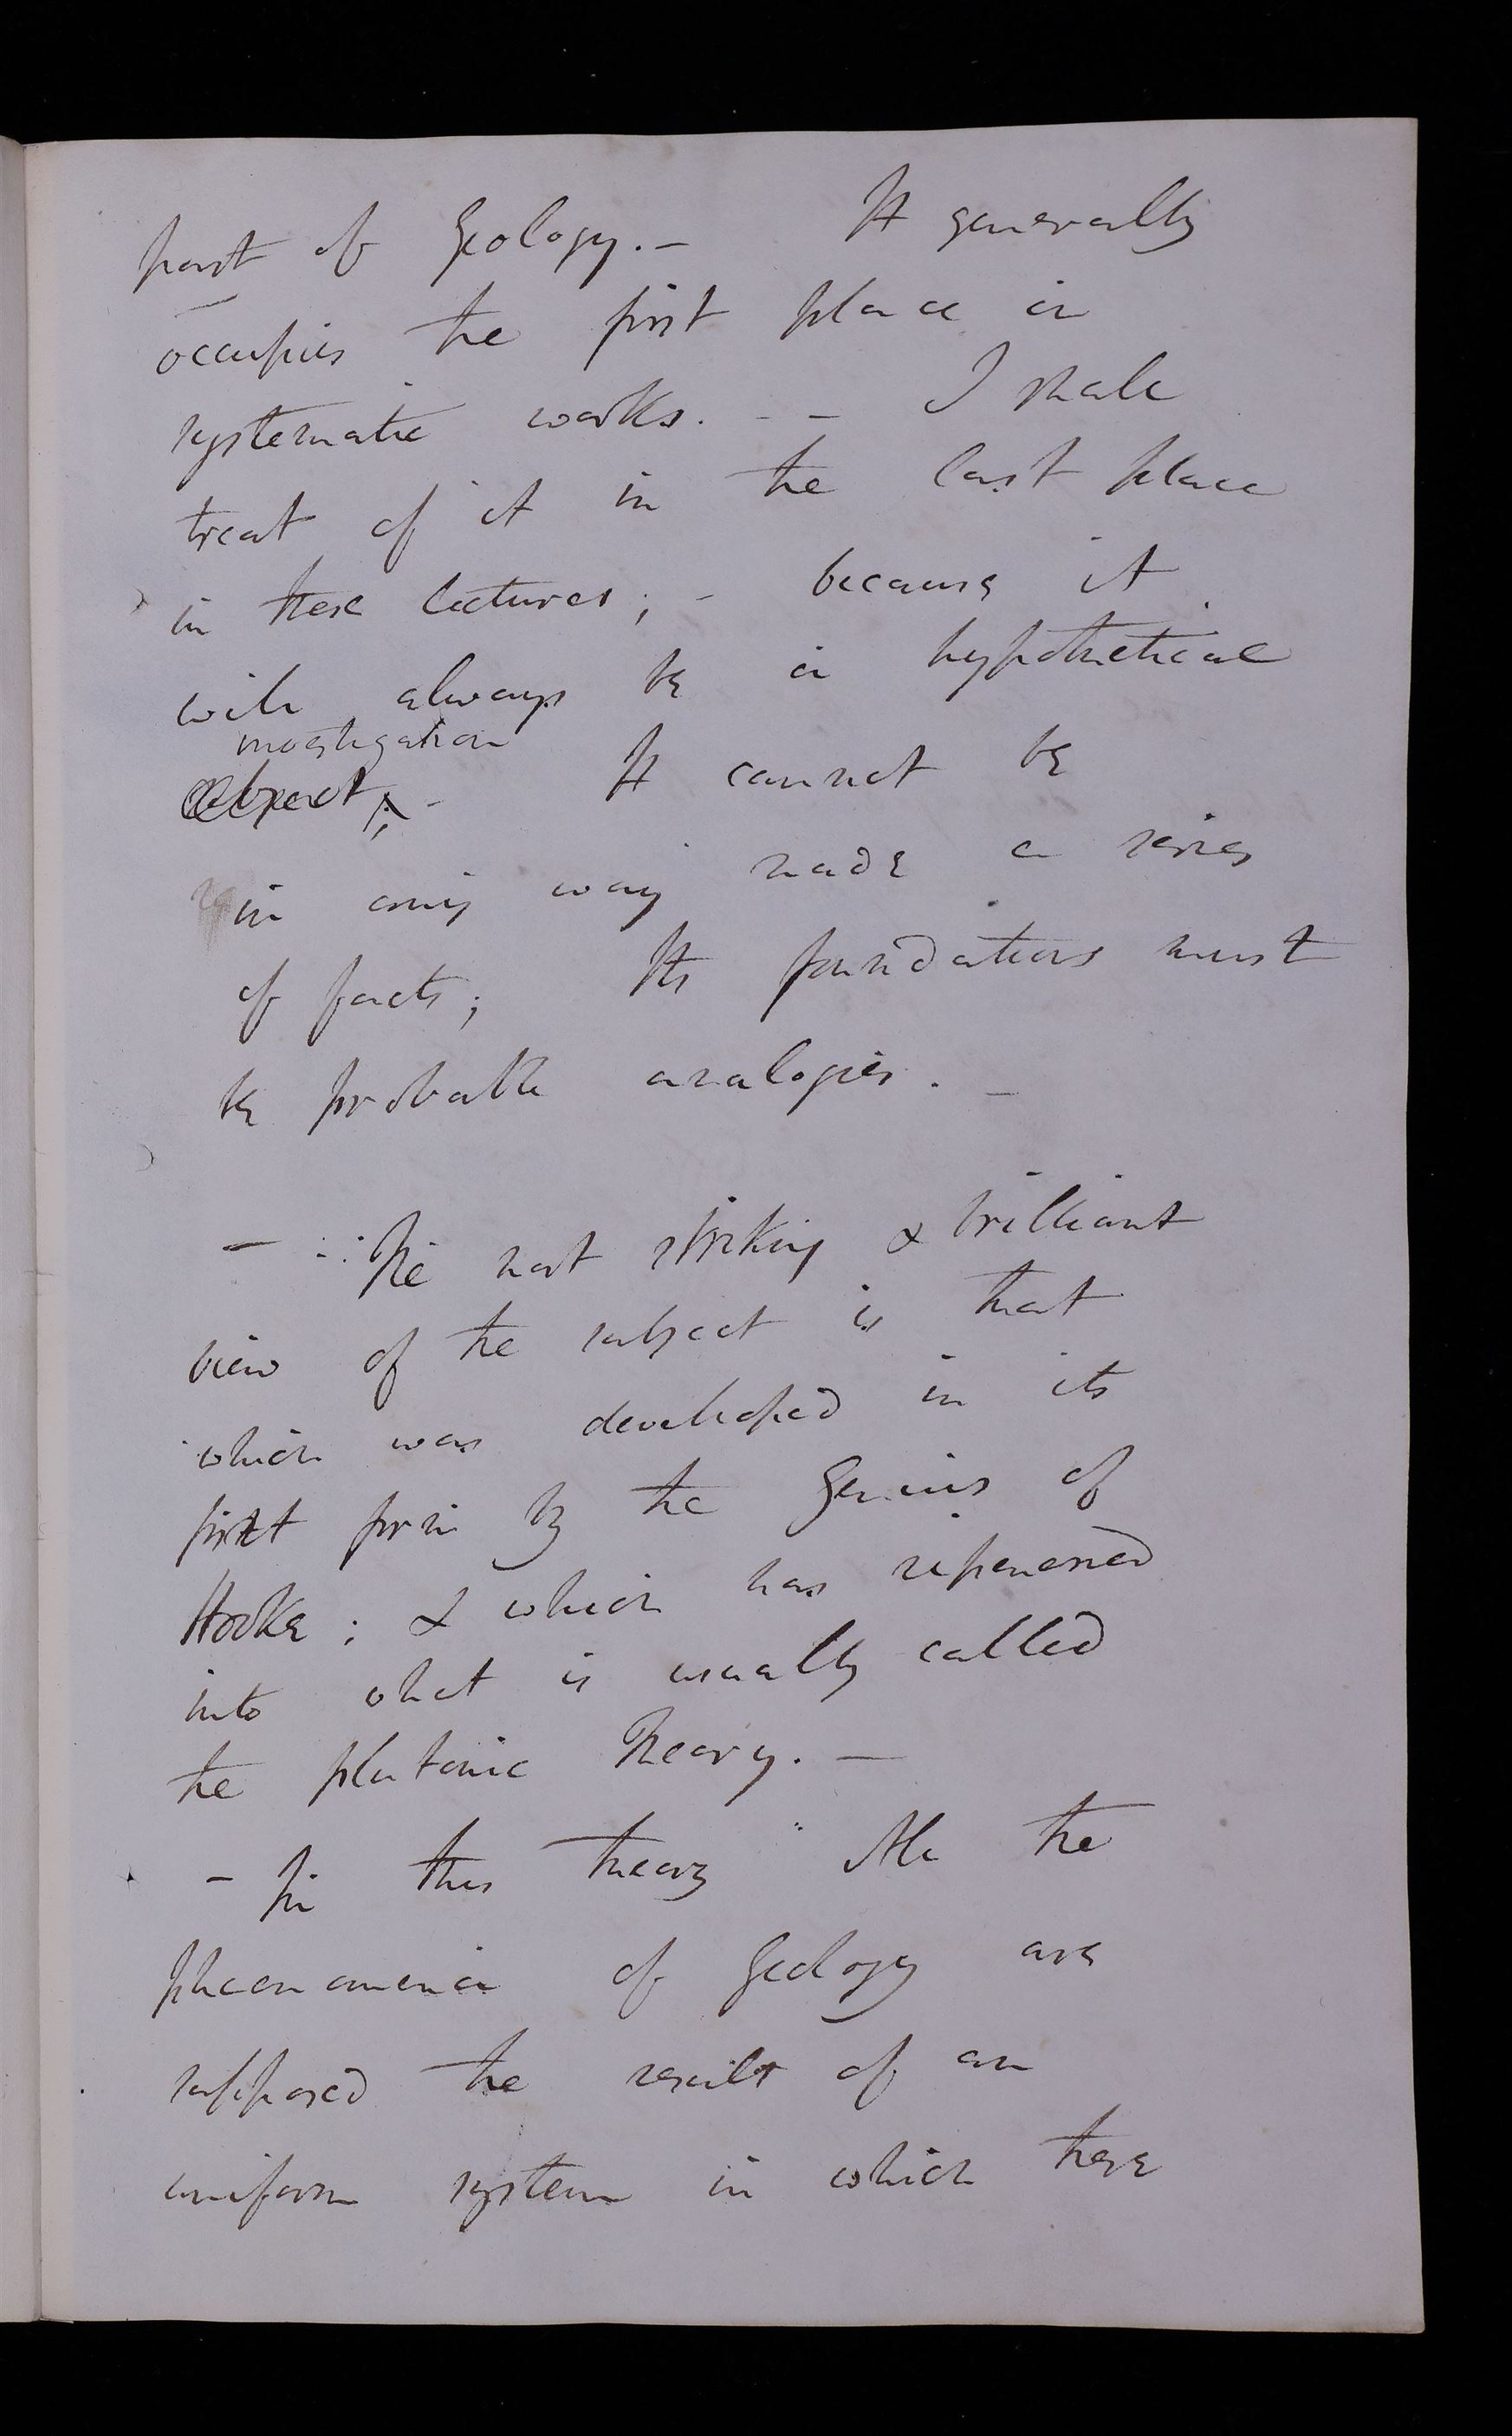 part of Geology. - It generally
occupies the first place in
systematic works. - - I shall
treat of it in the last place
in these lectures; - because it
will always be a hypothetical
investigation
object; - It cannot be
in any way made a series
of facts; Its foundations must
be probable analogies. -
- The most striking & brilliant
view of the subject is that
which was developed in its
first form by the Genius of
Hooke; & which has ripened
into what is usually called
the plutonic Theory. -
- In this theory All the
phaenomena of Geology are
supposed the result of an
uniform system in which there